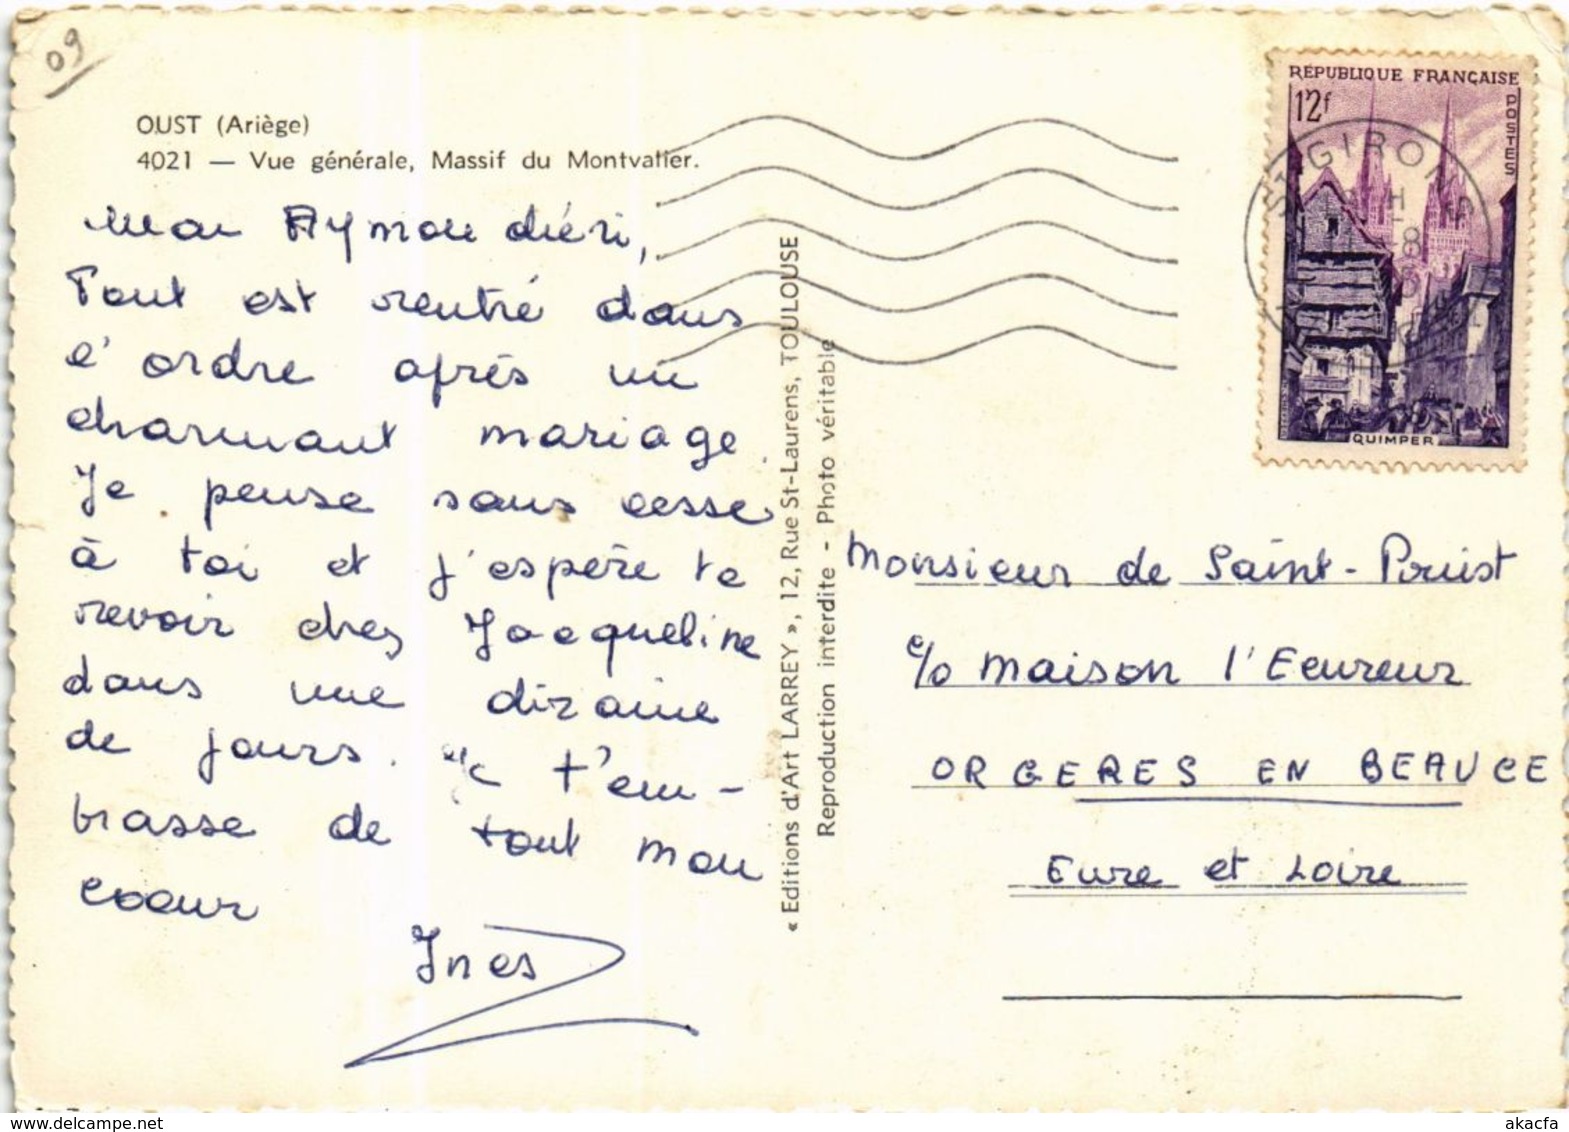 09
OUST (Ariège)
4021 — Vue générale, Massif du Montvalier.
Mon Aymon chéri,
Tout est rentré dans
l'ordre après un
charmant mariage.
Je pense sans cesse
à toi et j'espère te
revoir chez Jacqueline
dans une dizaine
de jours. Je t'em-
brasse de tout mon
coeur
Ines
« Editions d'Art LARREY », 12, Rue St-Laurens, TOULOUSE
Reproduction interdite - Photo véritable
RÉPUBLIQUE FRANÇAISE
12f
POSTES
QUIMPER
ST GIRONS
Monsieur de Saint-Priest
c/o Maison l'Ecureur
ORGERES EN BEAUCE
Eure et Loire
www.delcampe.net
akacfa